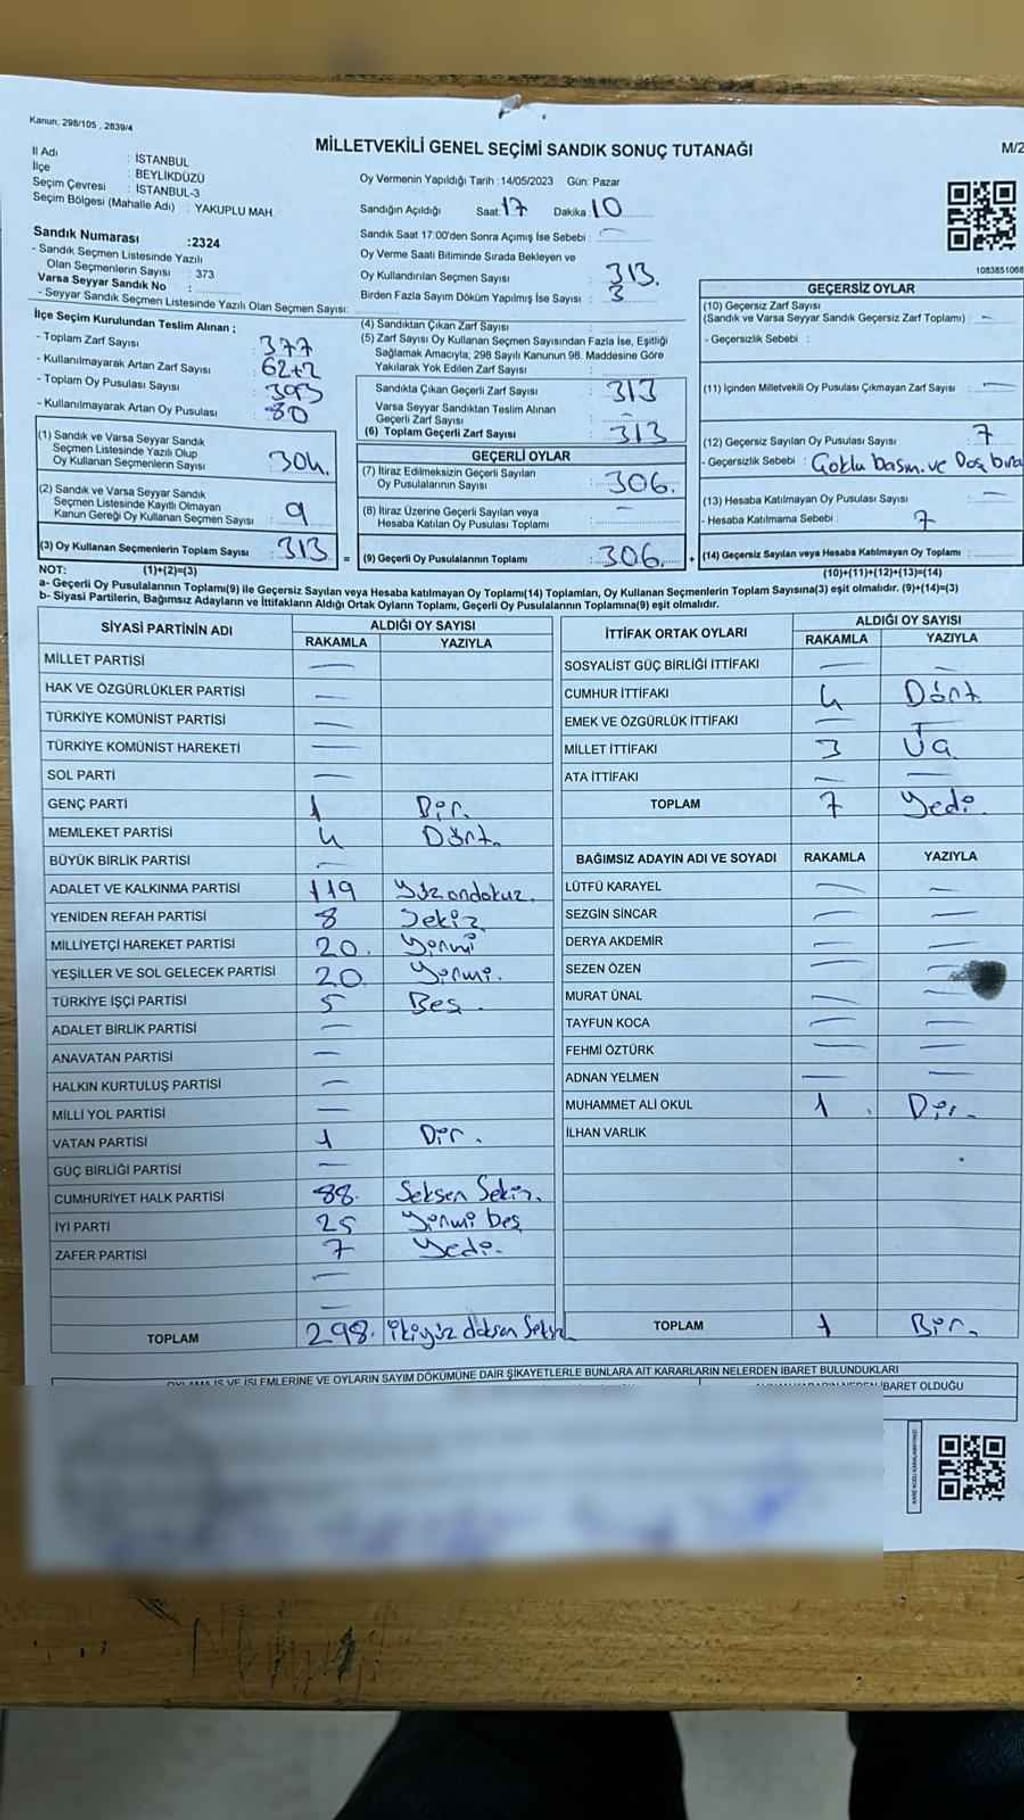 Kanun: 298/105 , 2839/4
MİLLETVEKİLİ GENEL SEÇİMİ SANDIK SONUÇ TUTANAĞI
M/2
İl Adı : İSTANBUL
İlçe : BEYLİKDÜZÜ
Seçim Çevresi : İSTANBUL-3
Seçim Bölgesi (Mahalle Adı) : YAKUPLU MAH.
Sandık Numarası :2324
- Sandık Seçmen Listesinde Yazılı
Olan Seçmenlerin Sayısı : 373
Varsa Seyyar Sandık No :
- Seyyar Sandık Seçmen Listesinde Yazılı Olan Seçmen Sayısı:
Oy Vermenin Yapıldığı Tarih :14/05/2023 Gün: Pazar
Sandığın Açıldığı Saat: 17 Dakika: 10
Sandık Saat 17:00'den Sonra Açımış İse Sebebi :
Oy Verme Saati Bitiminde Sırada Bekleyen ve
Oy Kullandırılan Seçmen Sayısı : 313.
Birden Fazla Sayım Döküm Yapılmış İse Sayısı : 3
İlçe Seçim Kurulundan Teslim Alınan ;
- Toplam Zarf Sayısı : 377
- Kullanılmayarak Artan Zarf Sayısı : 62+2
- Toplam Oy Pusulası Sayısı : 393
- Kullanılmayarak Artan Oy Pusulası : 80
(1) Sandık ve Varsa Seyyar Sandık
Seçmen Listesinde Yazılı Olup
Oy Kullanan Seçmenlerin Sayısı : 304.
(2) Sandık ve Varsa Seyyar Sandık
Seçmen Listesinde Kayıtlı Olmayan
Kanun Gereği Oy Kullanan Seçmen Sayısı : 9
(3) Oy Kullanan Seçmenlerin Toplam Sayısı : 313
(4) Sandıktan Çıkan Zarf Sayısı :
(5) Zarf Sayısı Oy Kullanan Seçmen Sayısından Fazla İse, Eşitliği
Sağlamak Amacıyla, 298 Sayılı Kanunun 98. Maddesine Göre
Yakılarak Yok Edilen Zarf Sayısı :
Sandıkta Çıkan Geçerli Zarf Sayısı : 313
Varsa Seyyar Sandıktan Teslim Alınan
Geçerli Zarf Sayısı : -
(6) Toplam Geçerli Zarf Sayısı : 313
GEÇERLİ OYLAR
(7) İtiraz Edilmeksizin Geçerli Sayılan
Oy Pusulalarının Sayısı : 306.
(8) İtiraz Üzerine Geçerli Sayılan veya
Hesaba Katılan Oy Pusulası Toplamı : -
= (9) Geçerli Oy Pusulalarının Toplamı : 306.
1083851068
GEÇERSİZ OYLAR
(10) Geçersiz Zarf Sayısı
(Sandık ve Varsa Seyyar Sandık Geçersiz Zarf Toplamı) : -
- Geçersizlik Sebebi :
(11) İçinden Milletvekili Oy Pusulası Çıkmayan Zarf Sayısı : -
(12) Geçersiz Sayılan Oy Pusulası Sayısı : 7
- Geçersizlik Sebebi :
(13) Hesaba Katılmayan Oy Pusulası Sayısı : -
- Hesaba Katılmama Sebebi : 7
+ (14) Geçersiz Sayılan veya Hesaba Katılmayan Oy Toplamı :
NOT: (1)+(2)=(3)
(10)+(11)+(12)+(13)=(14)
a- Geçerli Oy Pusulalarının Toplamı(9) ile Geçersiz Sayılan veya Hesaba katılmayan Oy Toplamı(14) Toplamları, Oy Kullanan Seçmenlerin Toplam Sayısına(3) eşit olmalıdır. (9)+(14)=(3)
b- Siyasi Partilerin, Bağımsız Adayların ve İttifakların Aldığı Ortak Oyların Toplamı, Geçerli Oy Pusulalarının Toplamına(9) eşit olmalıdır.
SİYASİ PARTİNİN ADI
ALDIĞI OY SAYISI
RAKAMLA YAZIYLA
MİLLET PARTİSİ -
HAK VE ÖZGÜRLÜKLER PARTİSİ -
TÜRKİYE KOMÜNİST PARTİSİ -
TÜRKİYE KOMÜNİST HAREKETİ -
SOL PARTİ -
GENÇ PARTİ 1 Bir.
MEMLEKET PARTİSİ 4 Dört.
BÜYÜK BİRLİK PARTİSİ -
ADALET VE KALKINMA PARTİSİ 119 Yüz ondokuz.
YENİDEN REFAH PARTİSİ 8 Sekiz
MİLLİYETÇİ HAREKET PARTİSİ 20. Yirmi
YEŞİLLER VE SOL GELECEK PARTİSİ 20 Yirmi.
TÜRKİYE İŞÇİ PARTİSİ 5 Beş.
ADALET BİRLİK PARTİSİ -
ANAVATAN PARTİSİ -
HALKIN KURTULUŞ PARTİSİ -
MİLLİ YOL PARTİSİ -
VATAN PARTİSİ 1 Bir.
GÜÇ BİRLİĞİ PARTİSİ -
CUMHURİYET HALK PARTİSİ 88. Seksen Sekiz.
İYİ PARTİ 25 Yirmi beş
ZAFER PARTİSİ 7 Yedi.
-
-
TOPLAM 298. ikiyüz doksan Sekiz
İTTİFAK ORTAK OYLARI
ALDIĞI OY SAYISI
RAKAMLA YAZIYLA
SOSYALİST GÜÇ BİRLİĞİ İTTİFAKI - -
CUMHUR İTTİFAKI 4 Dört
EMEK VE ÖZGÜRLÜK İTTİFAKI - -
MİLLET İTTİFAKI 3 Üç
ATA İTTİFAKI - -
TOPLAM 7 Yedi.
BAĞIMSIZ ADAYIN ADI VE SOYADI RAKAMLA YAZIYLA
LÜTFÜ KARAYEL - -
SEZGİN SİNCAR - -
DERYA AKDEMİR - -
SEZEN ÖZEN - -
MURAT ÜNAL - -
TAYFUN KOCA - -
FEHMİ ÖZTÜRK - -
ADNAN YELMEN - -
MUHAMMET ALİ OKUL 1 Bir.
İLHAN VARLIK
TOPLAM 1 Bir.
OYLAMA İŞ VE İŞLEMLERİNE VE OYLARIN SAYIM DÖKÜMÜNE DAİR ŞİKAYETLERLE BUNLARA AİT KARARLARIN NELERDEN İBARET BULUNDUKLARI
İBARET OLDUĞU